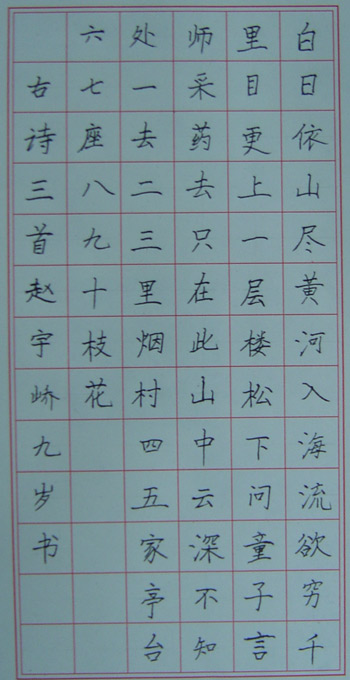 白日依山尽黄河入海流欲穷千
里目更上一层楼松下问童子言
师采药去只在此山中云深不知
处一去二三里烟村四五家亭台
六七座八九十枝花
右诗三首赵宇峤九岁书